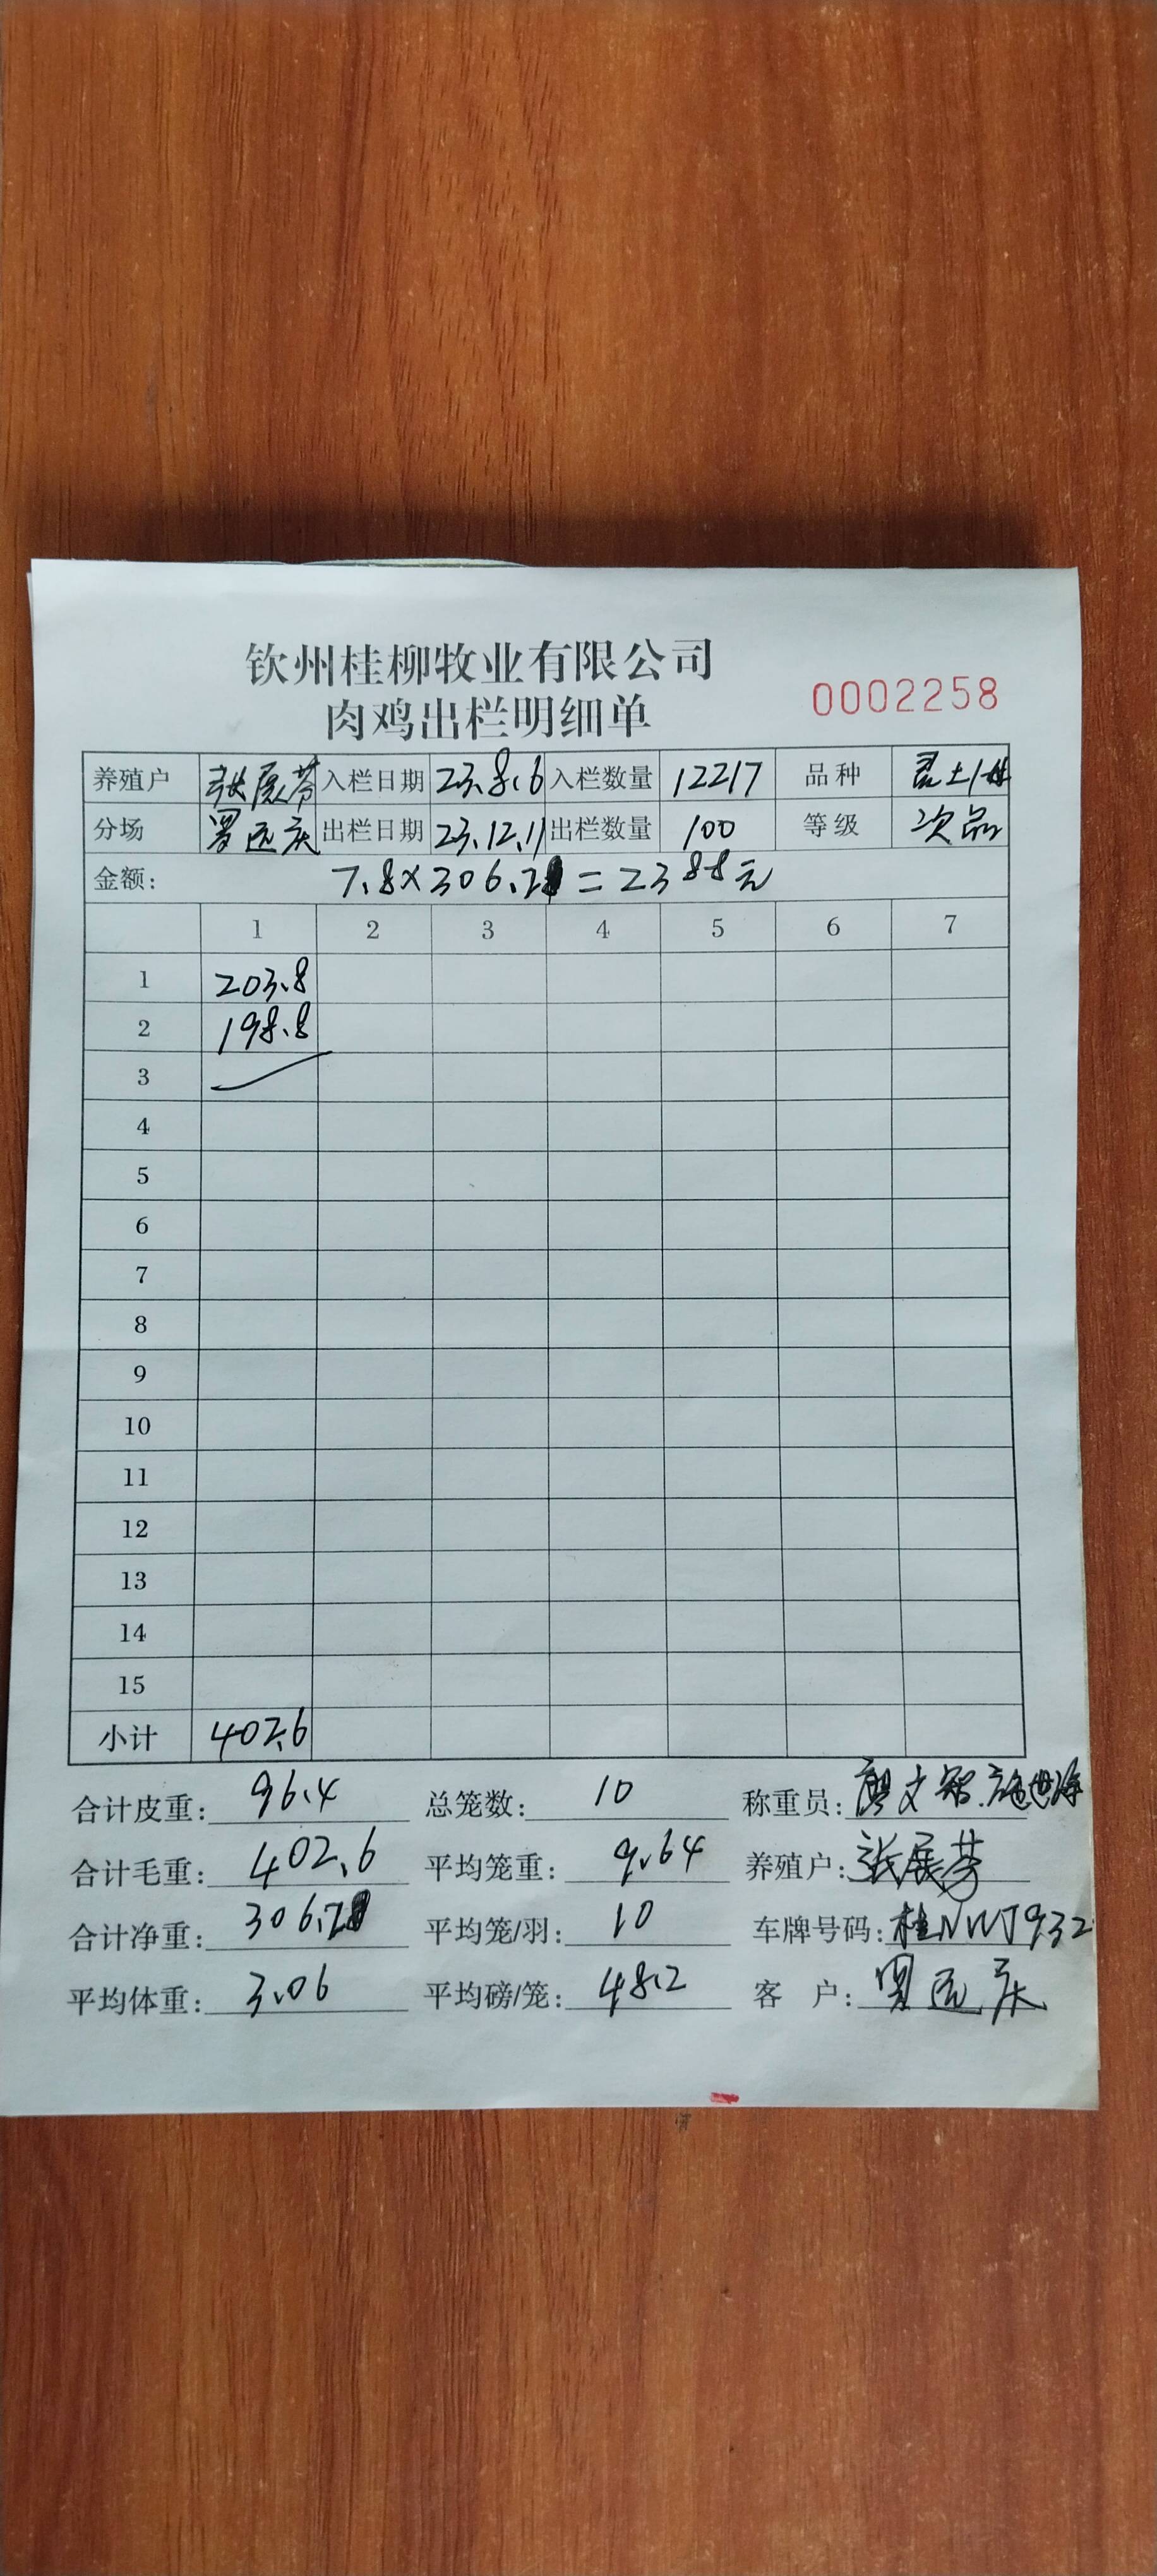 钦州桂柳牧业有限公司
肉鸡出栏明细单 0002258
养殖户 张展芬 入栏日期 23.8.6 入栏数量 12217 品种 土1母
分场 罗远庆 出栏日期 23.12.11 出栏数量 100 等级 次品
金额: 7.8×306.2=2388元
1 2 3 4 5 6 7
1 203.8
2 198.8
3
4
5
6
7
8
9
10
11
12
13
14
15
小计 402.6
合计皮重: 96.4 总笼数: 10 称重员: 廖文智.施世海
合计毛重: 402.6 平均笼重: 9.64 养殖户: 张展芬
合计净重: 306.2 平均笼/羽: 10 车牌号码: 桂NWJ932
平均体重: 3.06 平均磅/笼: 48.2 客 户: 罗远庆